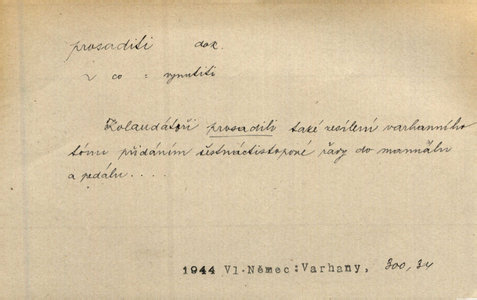 prosaditi dok.
2 co = vynutiti
Kolaudátoři prosadili také zesílení varhanního
tónu přidáním šestnáctistopové řady do manuálu
a pedálu....
1944 Vl.Němec:Varhany, 300,34